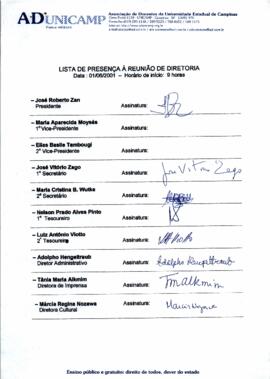 ADUNICAMP
Associação de Docentes da Universidade Estadual de Campinas
LISTA DE PRESENÇA À REUNIÃO DE DIRETORIA
Data : 01/06/2001 – Horário de início: 9 horas
– José Roberto Zan
Presidente
Assinatura:
– Maria Aparecida Moysés
1ª Vice-Presidente
Assinatura:
– Elias Basile Tambougi
2º Vice-Presidente
Assinatura:
– José Vitório Zago
1º Secretário
Assinatura: José Vitório Zago
– Maria Cristina B. Wutke
2ª Secretária
Assinatura:
– Nelson Prado Alves Pinto
1º Tesoureiro
Assinatura:
– Luiz Antônio Viotto
2º Tesoureiro
Assinatura:
– Adolpho Hengeltraub
Diretor Administrativo
Assinatura: Adolpho Hengeltraub
– Tânia Maria Alkmim
Diretora de Imprensa
Assinatura: Tmalkmim
– Márcia Regina Nozawa
Diretora Cultural
Assinatura:
Ensino público e gratuito: direito de todos, dever do estado